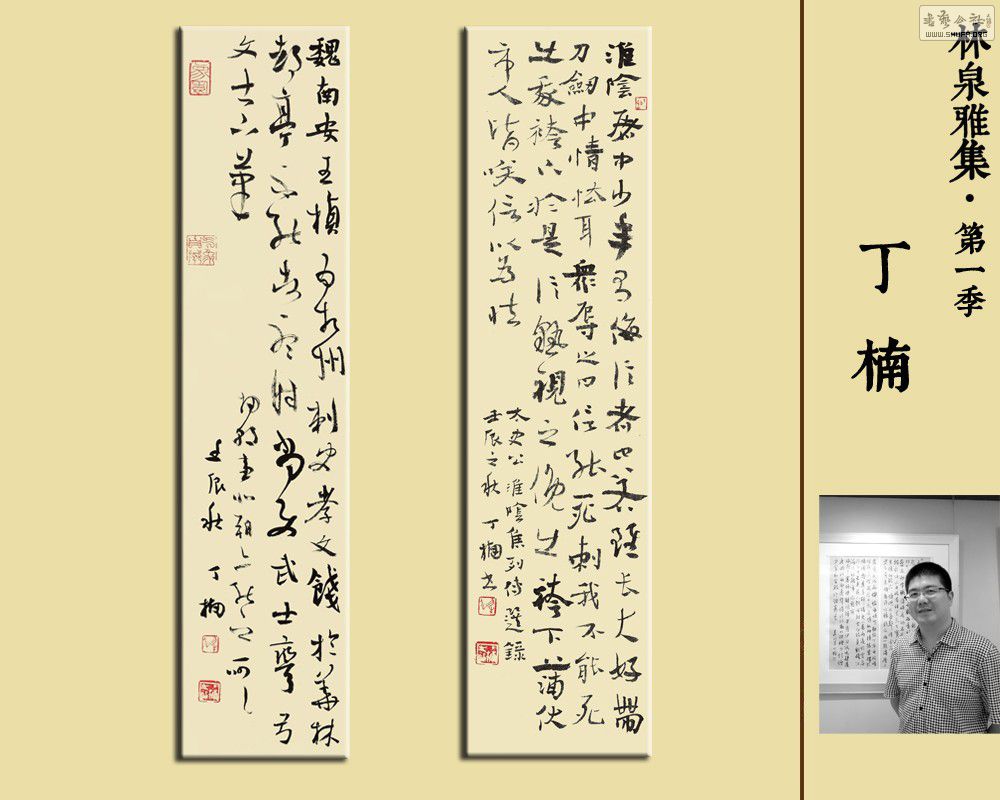 书艺公社
WWW.SHUFA.ORG
林泉雅集·第一季
丁楠
淮陰屠中少年有侮信者曰若雖長大好帶
刀劍中情怯耳眾辱之曰信能死刺我不能死
出我袴下於是信孰視之俛出袴下蒲伏
市人皆咲信以為怯
太史公淮陰侯列傳選錄
壬辰之秋丁楠書
魏南安王楨為相州刺史孝文餞於華林
都亭不能者聽射當使武士彎弓
文士下筆
壬辰秋丁楠